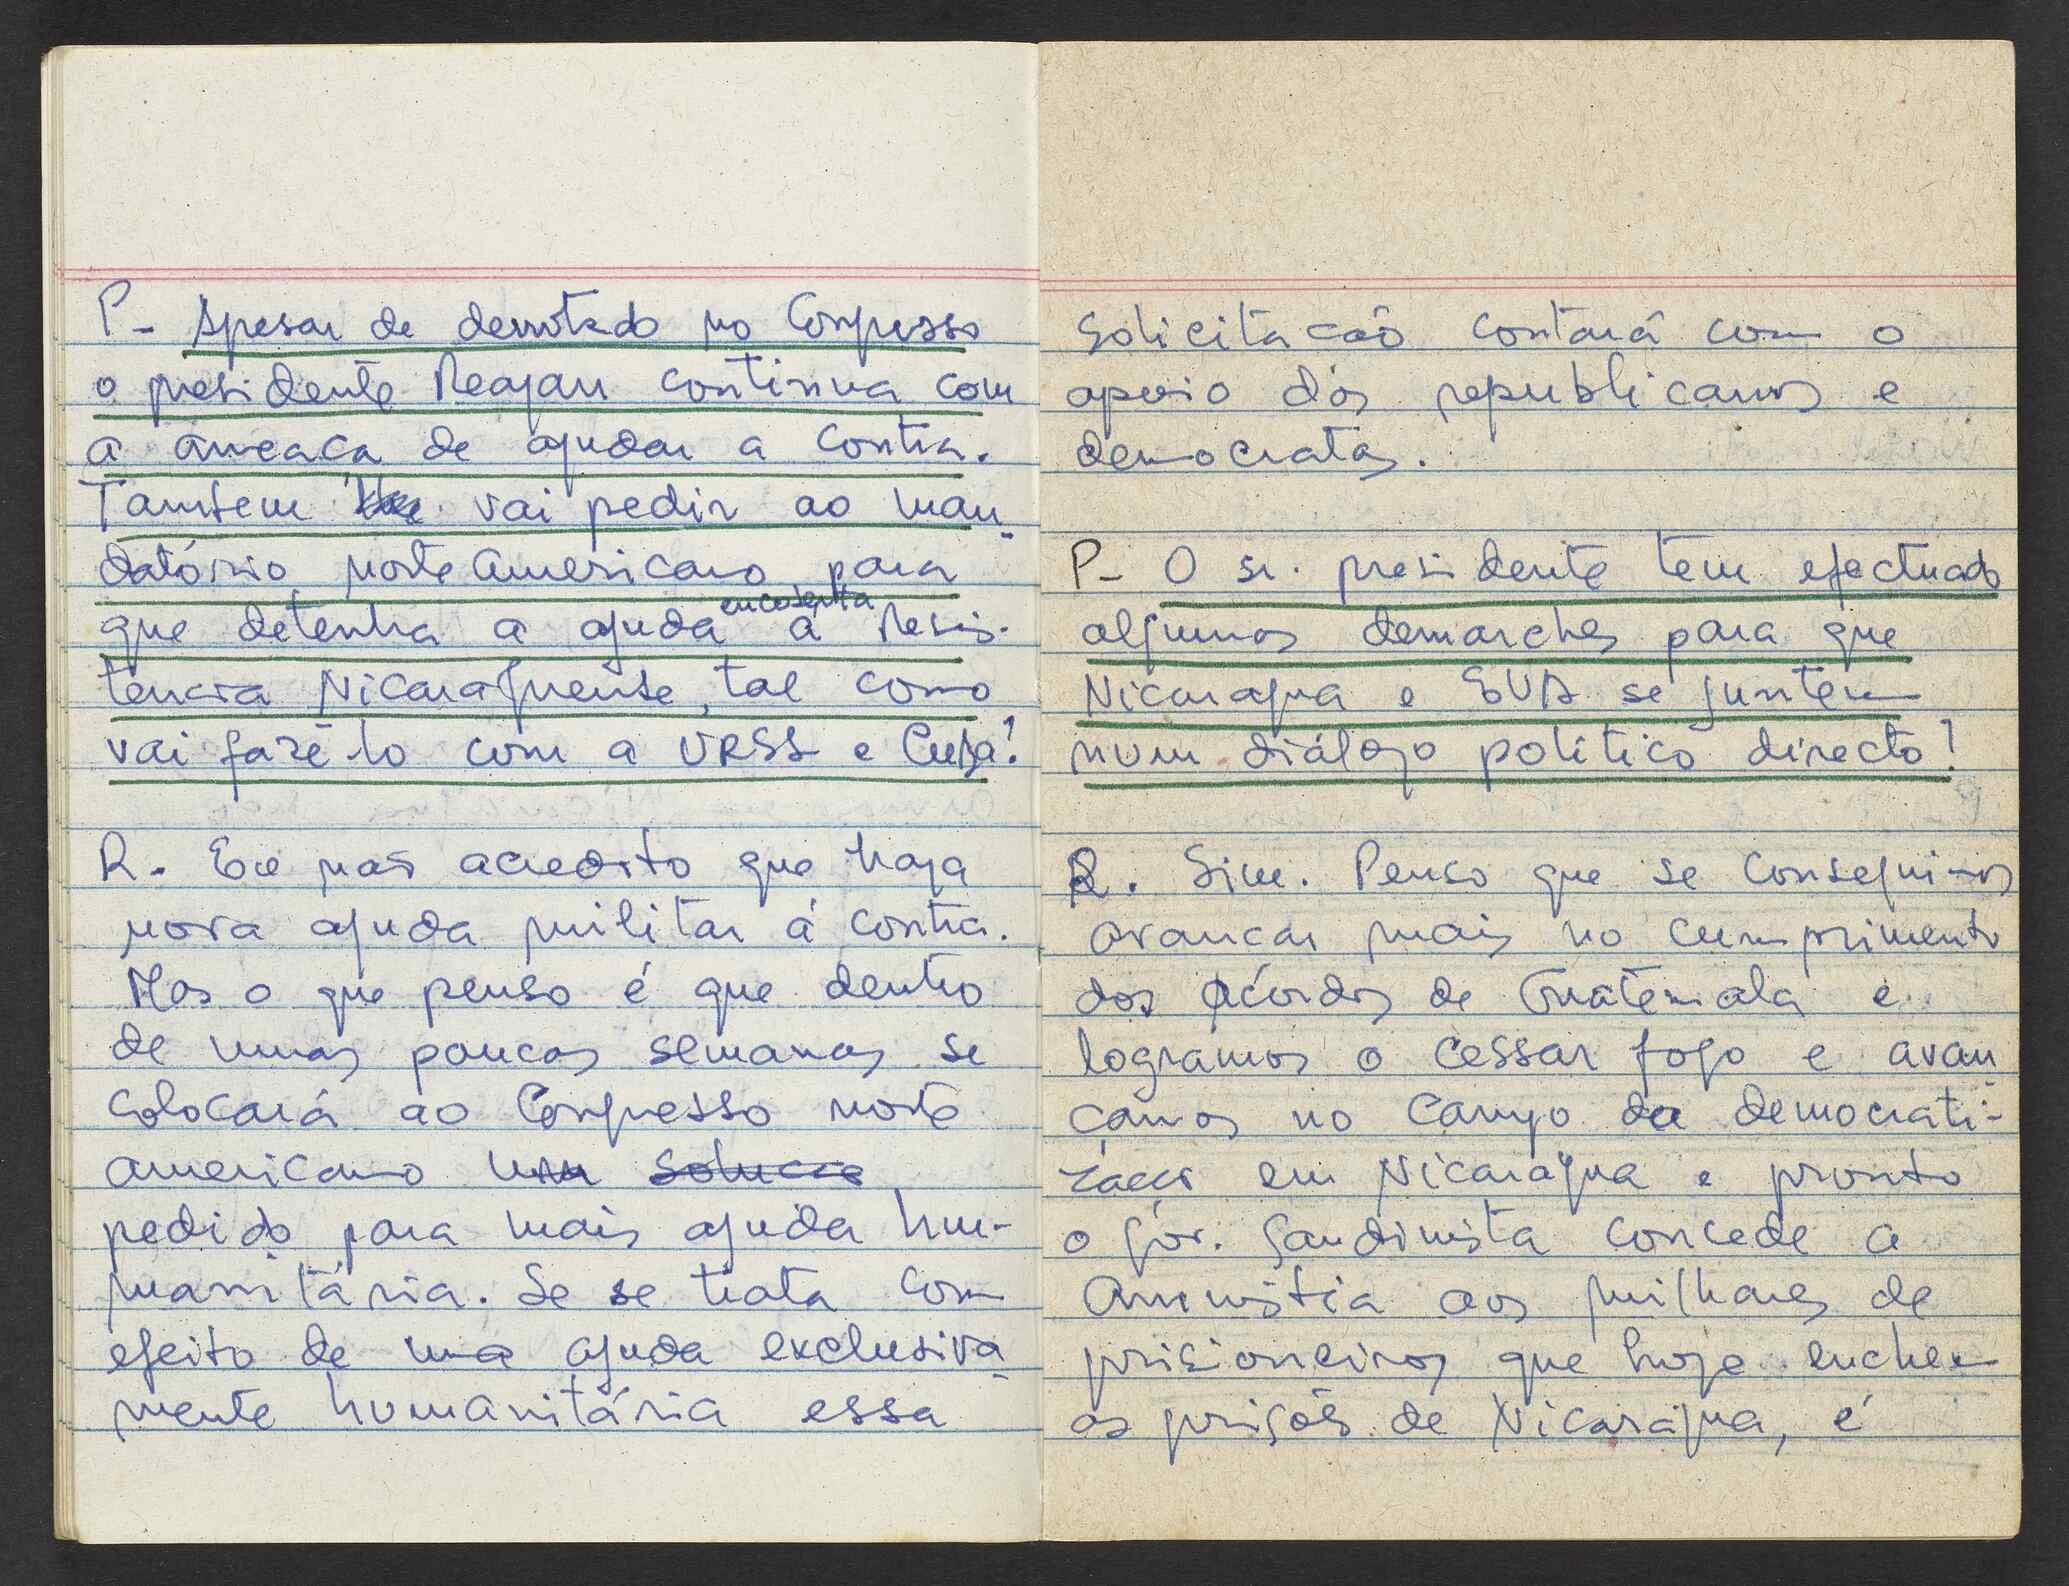 P- Apesar de derrotado no Congresso
o presidente Reagan continua com
a ameaca de ajudar a contra.
Tambem vai pedir ao man-
datório norte americano para
que detenha a ajuda encoberta á Resis-
tencia Nicaraguense, tal como
vai fazê-lo com a URSS e Cuba?
R. Eu não acredito que haja
nova ajuda militar á contra.
Mas o que penso é que dentro
de umas poucas semanas se
colocará ao Congresso norte
americano um solucao
pedido para mais ajuda hu-
manitária. Se se trata com
efeito de uma ajuda exclusiva-
mente humanitária essa
solicitacaõ contará com o
apoio dos republicanos e
democratas.
P- O sr. presidente tem efectuado
algumas demarches para que
Nicaragua e EUA se juntem
num diálogo politico directo?
R. Sim. Penso que se conseguimos
avancar mais no cumprimento
dos Acordos de Guatemala e
logramos o cessar fogo e avan-
camos no campo da democrati-
zacao em Nicaragua e pronto
o gov. Sandinista concede a
Amnistia aos milhares de
prisioneiros que hoje enchem
as prisões de Nicaragua, é